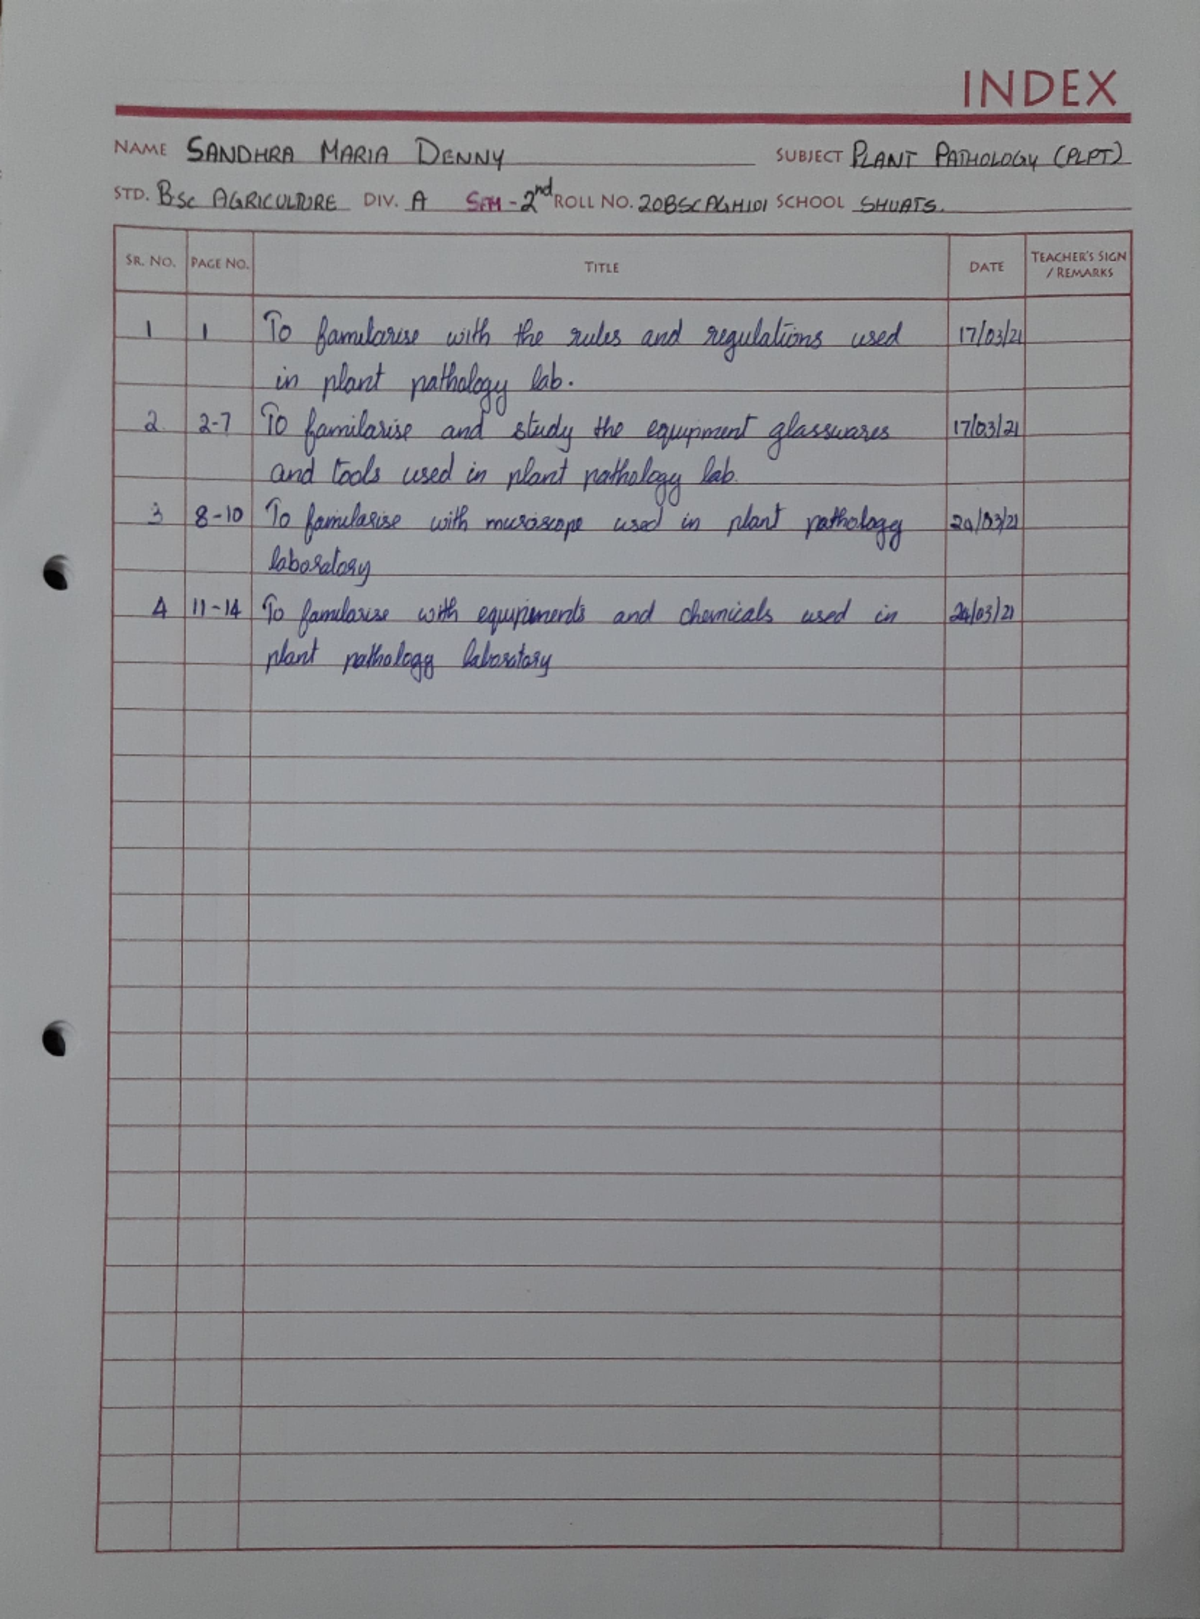 INDEX
NAME SANDHRA MARIA DENNY SUBJECT PLANT PATHOLOGY (PLPT)
STD. BSc AGRICULTURE DIV. A SEM-2nd ROLL NO. 20BSCAGH101 SCHOOL SHUATS.
SR. NO. PAGE NO. TITLE DATE TEACHER'S SIGN / REMARKS
1 1 To familarise with the rules and regulations used 17/03/21
in plant pathology lab.
2. 2-7 To familarise and study the equipment glasswares 17/03/21
and tools used in plant pathology lab.
3 8-10 To familarise with microscope used in plant pathology /03/21
laboratory
4 11-14 To familarise with equipments and chemicals used in /03/21
plant pathology laboratory